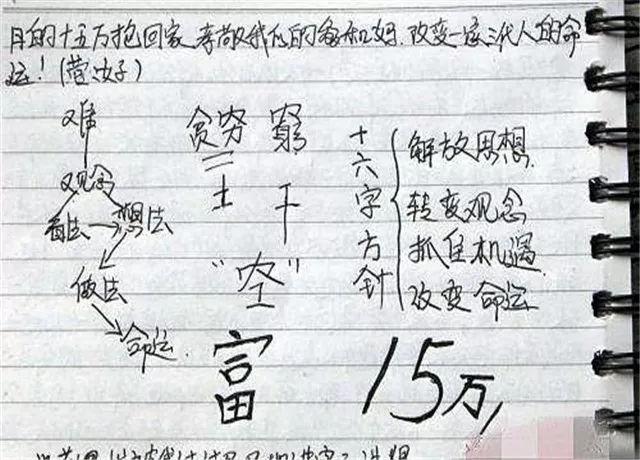 目的十五万抱回家 孝敬我们的爸和妈. 改变一家三代人的命
运!(营口子)
难
观念
看法→想法
做法
命运.
贫穷 窮
二 土 干
"空"
富
十六字方针
解放思想.
转变观念
抓住机遇
改变命运
15万,